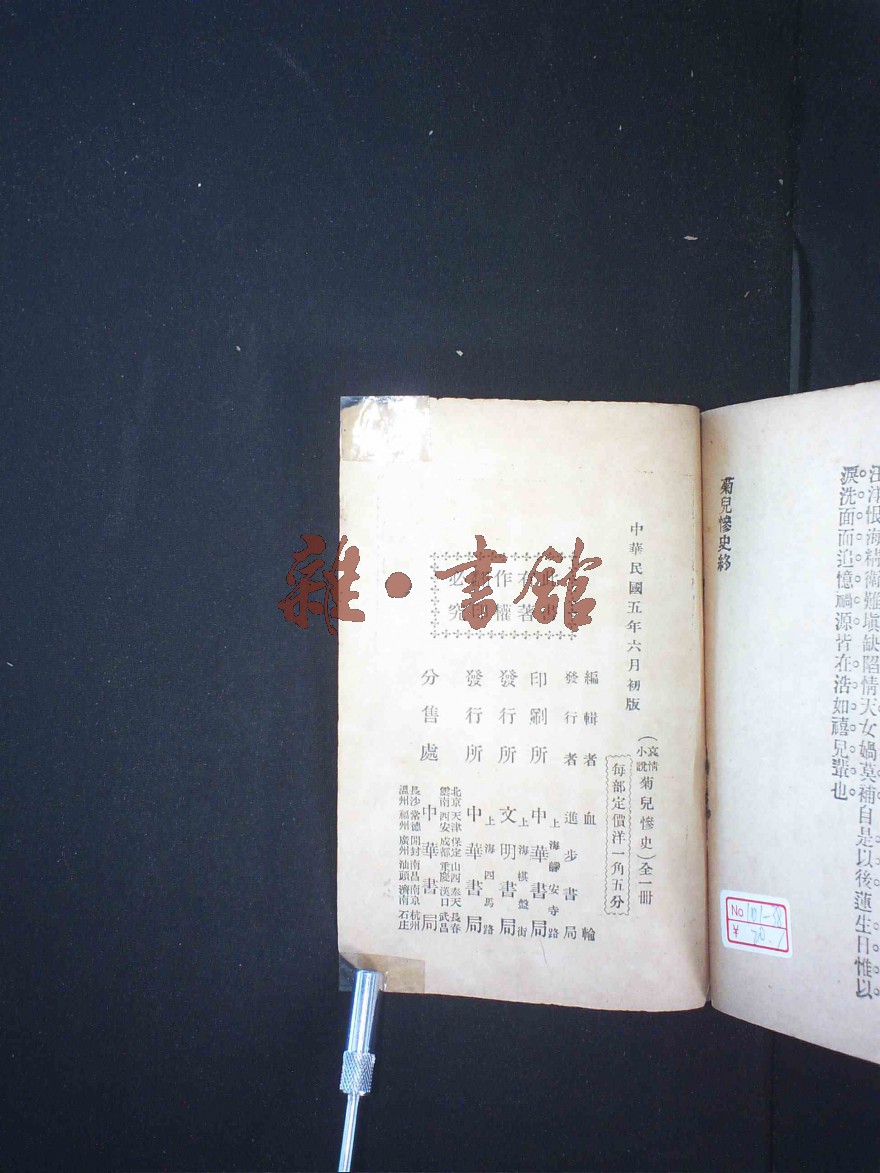 汪洋恨海精衛難塡缺陷情天女媧莫補自是以後蓮生日惟以
淚洗面而追憶禍源皆在浩如禧兒輩也
菊兒慘史終
No 101-38
¥ 70.
中華民國五年六月初版
（哀情小說 菊兒慘史）全一冊
每部定價洋一角五分
此書有著作權翻印必究
雜·書館
編輯者 血輪
發行者 進步書局
印刷所 上海靜安寺路 中華書局
發行所 上海棋盤街 文明書局
發行所 上海四馬路 中華書局
分售處 中華書局
北京 天津 保定 山西 奉天 長春
雲南 西安 成都 重慶 漢口 武昌
長沙 常德 開封 南昌 南京 杭州
溫州 福州 廣州 汕頭 濟南 石庄